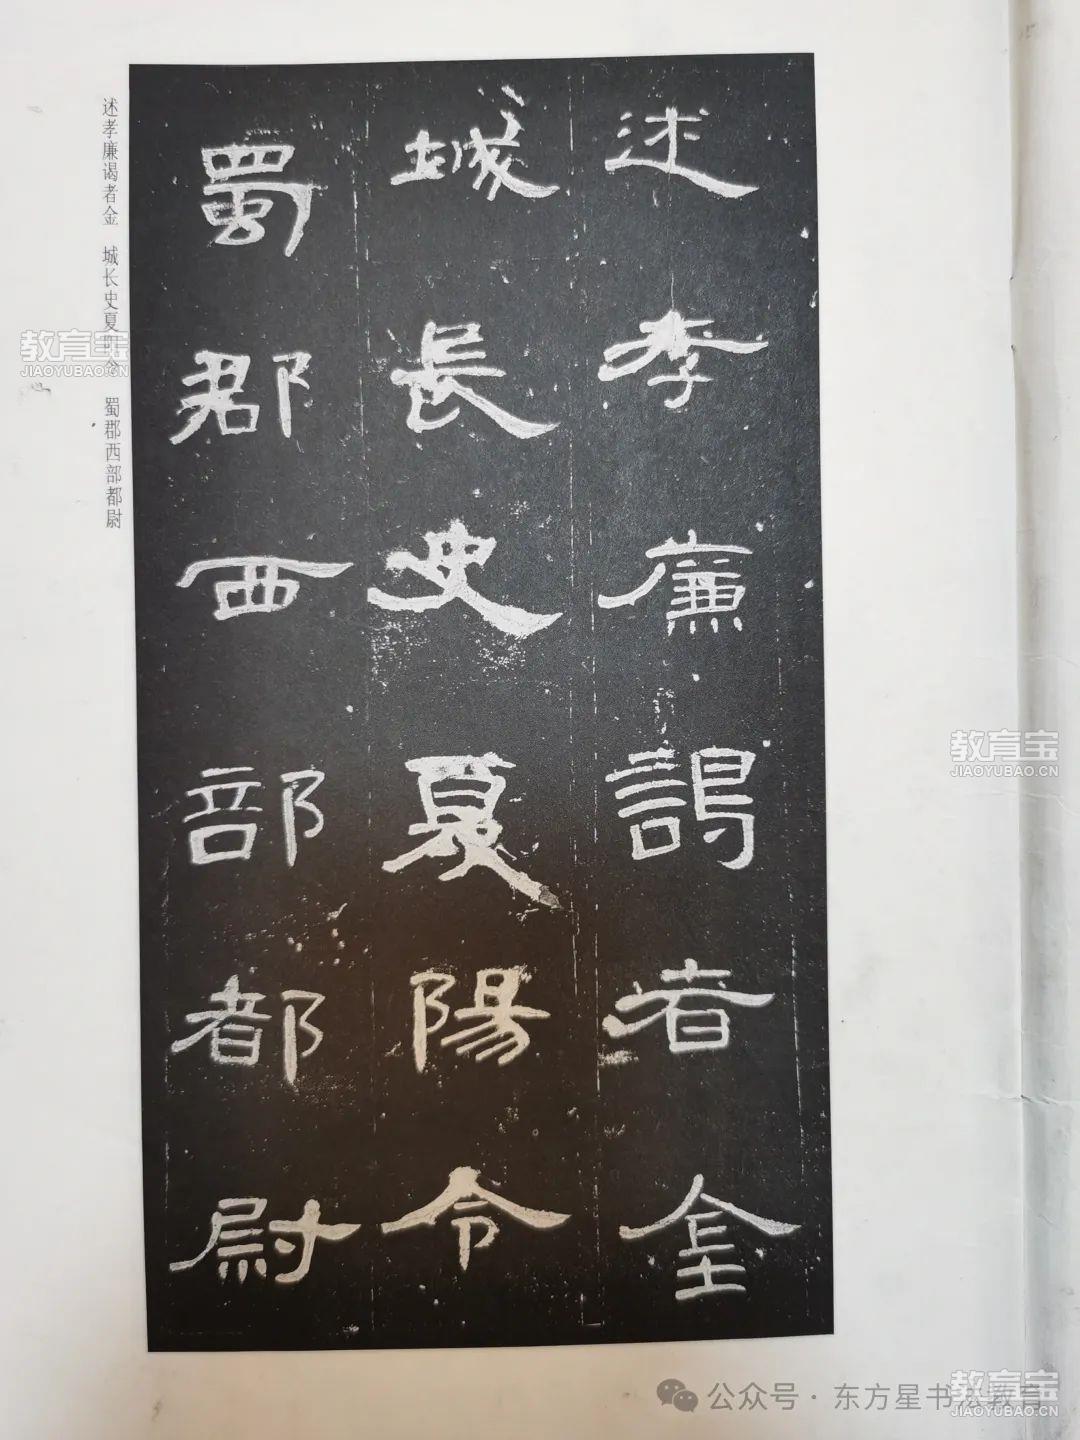 述孝廉謁者金
城長史夏陽令
蜀郡西部都尉
述孝廉谒者金 城长史夏阳令 蜀郡西部都尉
教育宝
JIAOYUBAO.CN
教育宝
JIAOYUBAO.CN
教育宝
JIAOYUBAO.CN
公众号·东方星书法教育